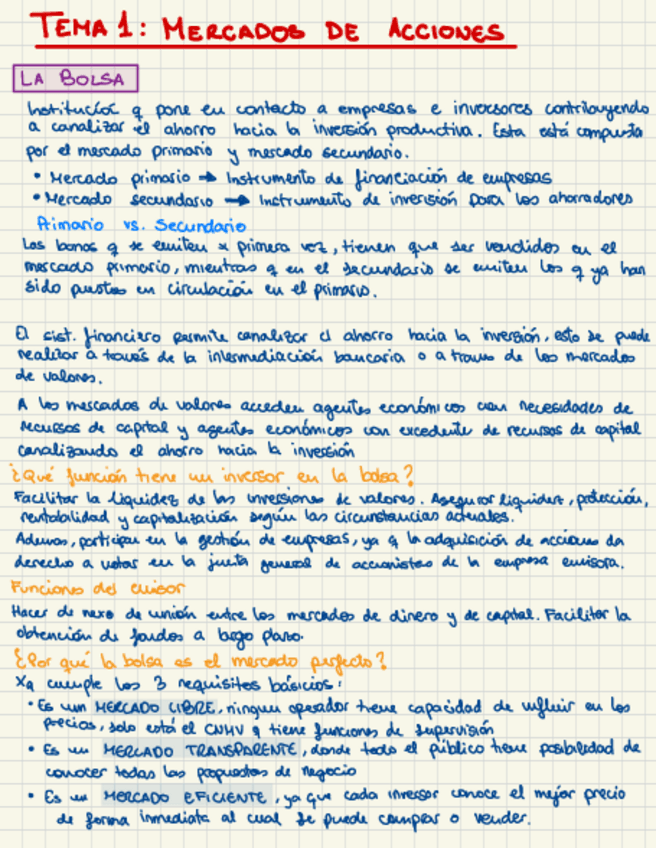 TEMA 1: MERCADOS DE ACCIONES
LA BOLSA
Institución q pone en contacto a empresas e inversores contribuyendo
a canalizar el ahorro hacia la inversión productiva. Esta está compuesta
por el mercado primario y mercado secundario.
• Mercado primario → Instrumento de financiación de empresas
• Mercado secundario → Instrumento de inversión para los ahorradores
Primario vs. Secundario
Los bonos q se emiten x primera vez, tienen que ser vendidos en el
mercado primario, mientras q en el secundario se emiten los q ya han
sido puestos en circulación en el primario.
El sist. financiero permite canalizar el ahorro hacia la inversión, esto se puede
realizar a través de la intermediación bancaria o a traves de los mercados
de valores.
A los mercados de valores acceden agentes económicos con necesidades de
recursos de capital y agentes económicos con excedente de recursos de capital
canalizando el ahorro hacia la inversión
¿Qué función tiene un inversor en la bolsa?
Facilitar la liquidez de las inversiones de valores. Asegurar liquidez, protección,
rentabilidad y capitalización según las circunstancias actuales.
Ademas, participa en la gestión de empresas, ya q la adquisición de acciones da
derecho a votar en la junta general de accionistas de la empresa emisora.
Funciones del emisor
Hacer de nexo de unión entre los mercados de dinero y de capital. Facilitar la
obtención de fondos a largo plazo.
¿Por qué la bolsa es el mercado perfecto?
Xq cumple los 3 requisitos básicos:
• Es un MERCADO LIBRE, ningun operador tiene capacidad de influir en los
precios, solo está el CNMV q tiene funciones de supervisión
• Es un MERCADO TRANSPARENTE, donde todo el público tiene posibilidad de
conocer todas las propuestas de negocio
• Es un MERCADO EFICIENTE, ya que cada inversor conoce el mejor precio
de forma inmediata al cual se puede comprar o vender.